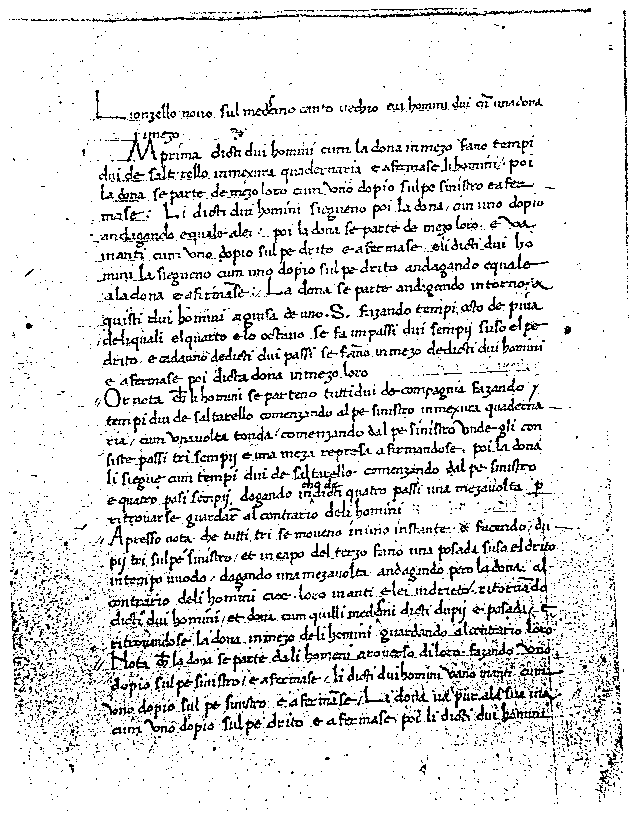 Lionzello novo sul medesimo canto vechio cui homini dui cum una dona
in mezo
IM prima dicti dui homini cum la dona in mezo fano tempi
dui de saltarello in mexura quadernaria e afermase li homini poi
la dona se parte de mezo loro cum uno dopio sul pe sinistro e afer
mase: Li dicti dui homini siegueno poi la dona cum uno dopio
andagando equalo a lei: poi la dona se parte de mezo loro e va
inanti cum uno dopio sul pe drito e afermase e li dicti dui ho
mini la siegueno cum uno dopio sul pe drito andagando equale
a la dona e afermase: La dona se parte andigando intorniza
quisti dui homini a guisa de uno .S. fazando tempi octo de piva
deli quali el quarto e lo octavo se fa im passi dui sempij suso el pe
drito e cadauno de dicti dui passi se fano in mezo de dicti dui homini
e afermase poi dicta dona in mezo loro
Or nota che li homini se parteno tutti dui de compagnia fazando
tempi dui de saltarello comenzando al pe sinistro in mexura quaderna
ria cum una volta tonda comenzando dal pe sinistro unde gli con
siste passi tri sempij e una meza represa afirmandose poi la dona
li siegue cum tempi dui de saltarello comenzando dal pe sinistro
e quatro pasi sempij dagando in dicti quatro passi una meza volta p
ritrovarse guardar al contrario de li homini
Apresso nota che tutti tri se moveno in uno instante & facendo du
pij tri sul pe sinistro et in capo del terzo fano una posada suso el drito
in tempo vuodo dagando una mezavolta andagando pero la dona al
contrario de li homini cioe loro inanti e lei indrieto ritornando
dicti dui homini et dona cum quilli medemi dicti dupij e posada e
ritrovandose la dona in mezo de li homini guardando al contrario loro
Nota che la dona se parte da li homeni a roverso di loro fazando uno
dopio sul pe sinistro e afermase li dicti dui homini vano inanti cum
uno dopio sul pe sinistro e afermase La dona va pur a la sua via
cum uno dopio sul pe drito e afermase poi li dicti dui homini